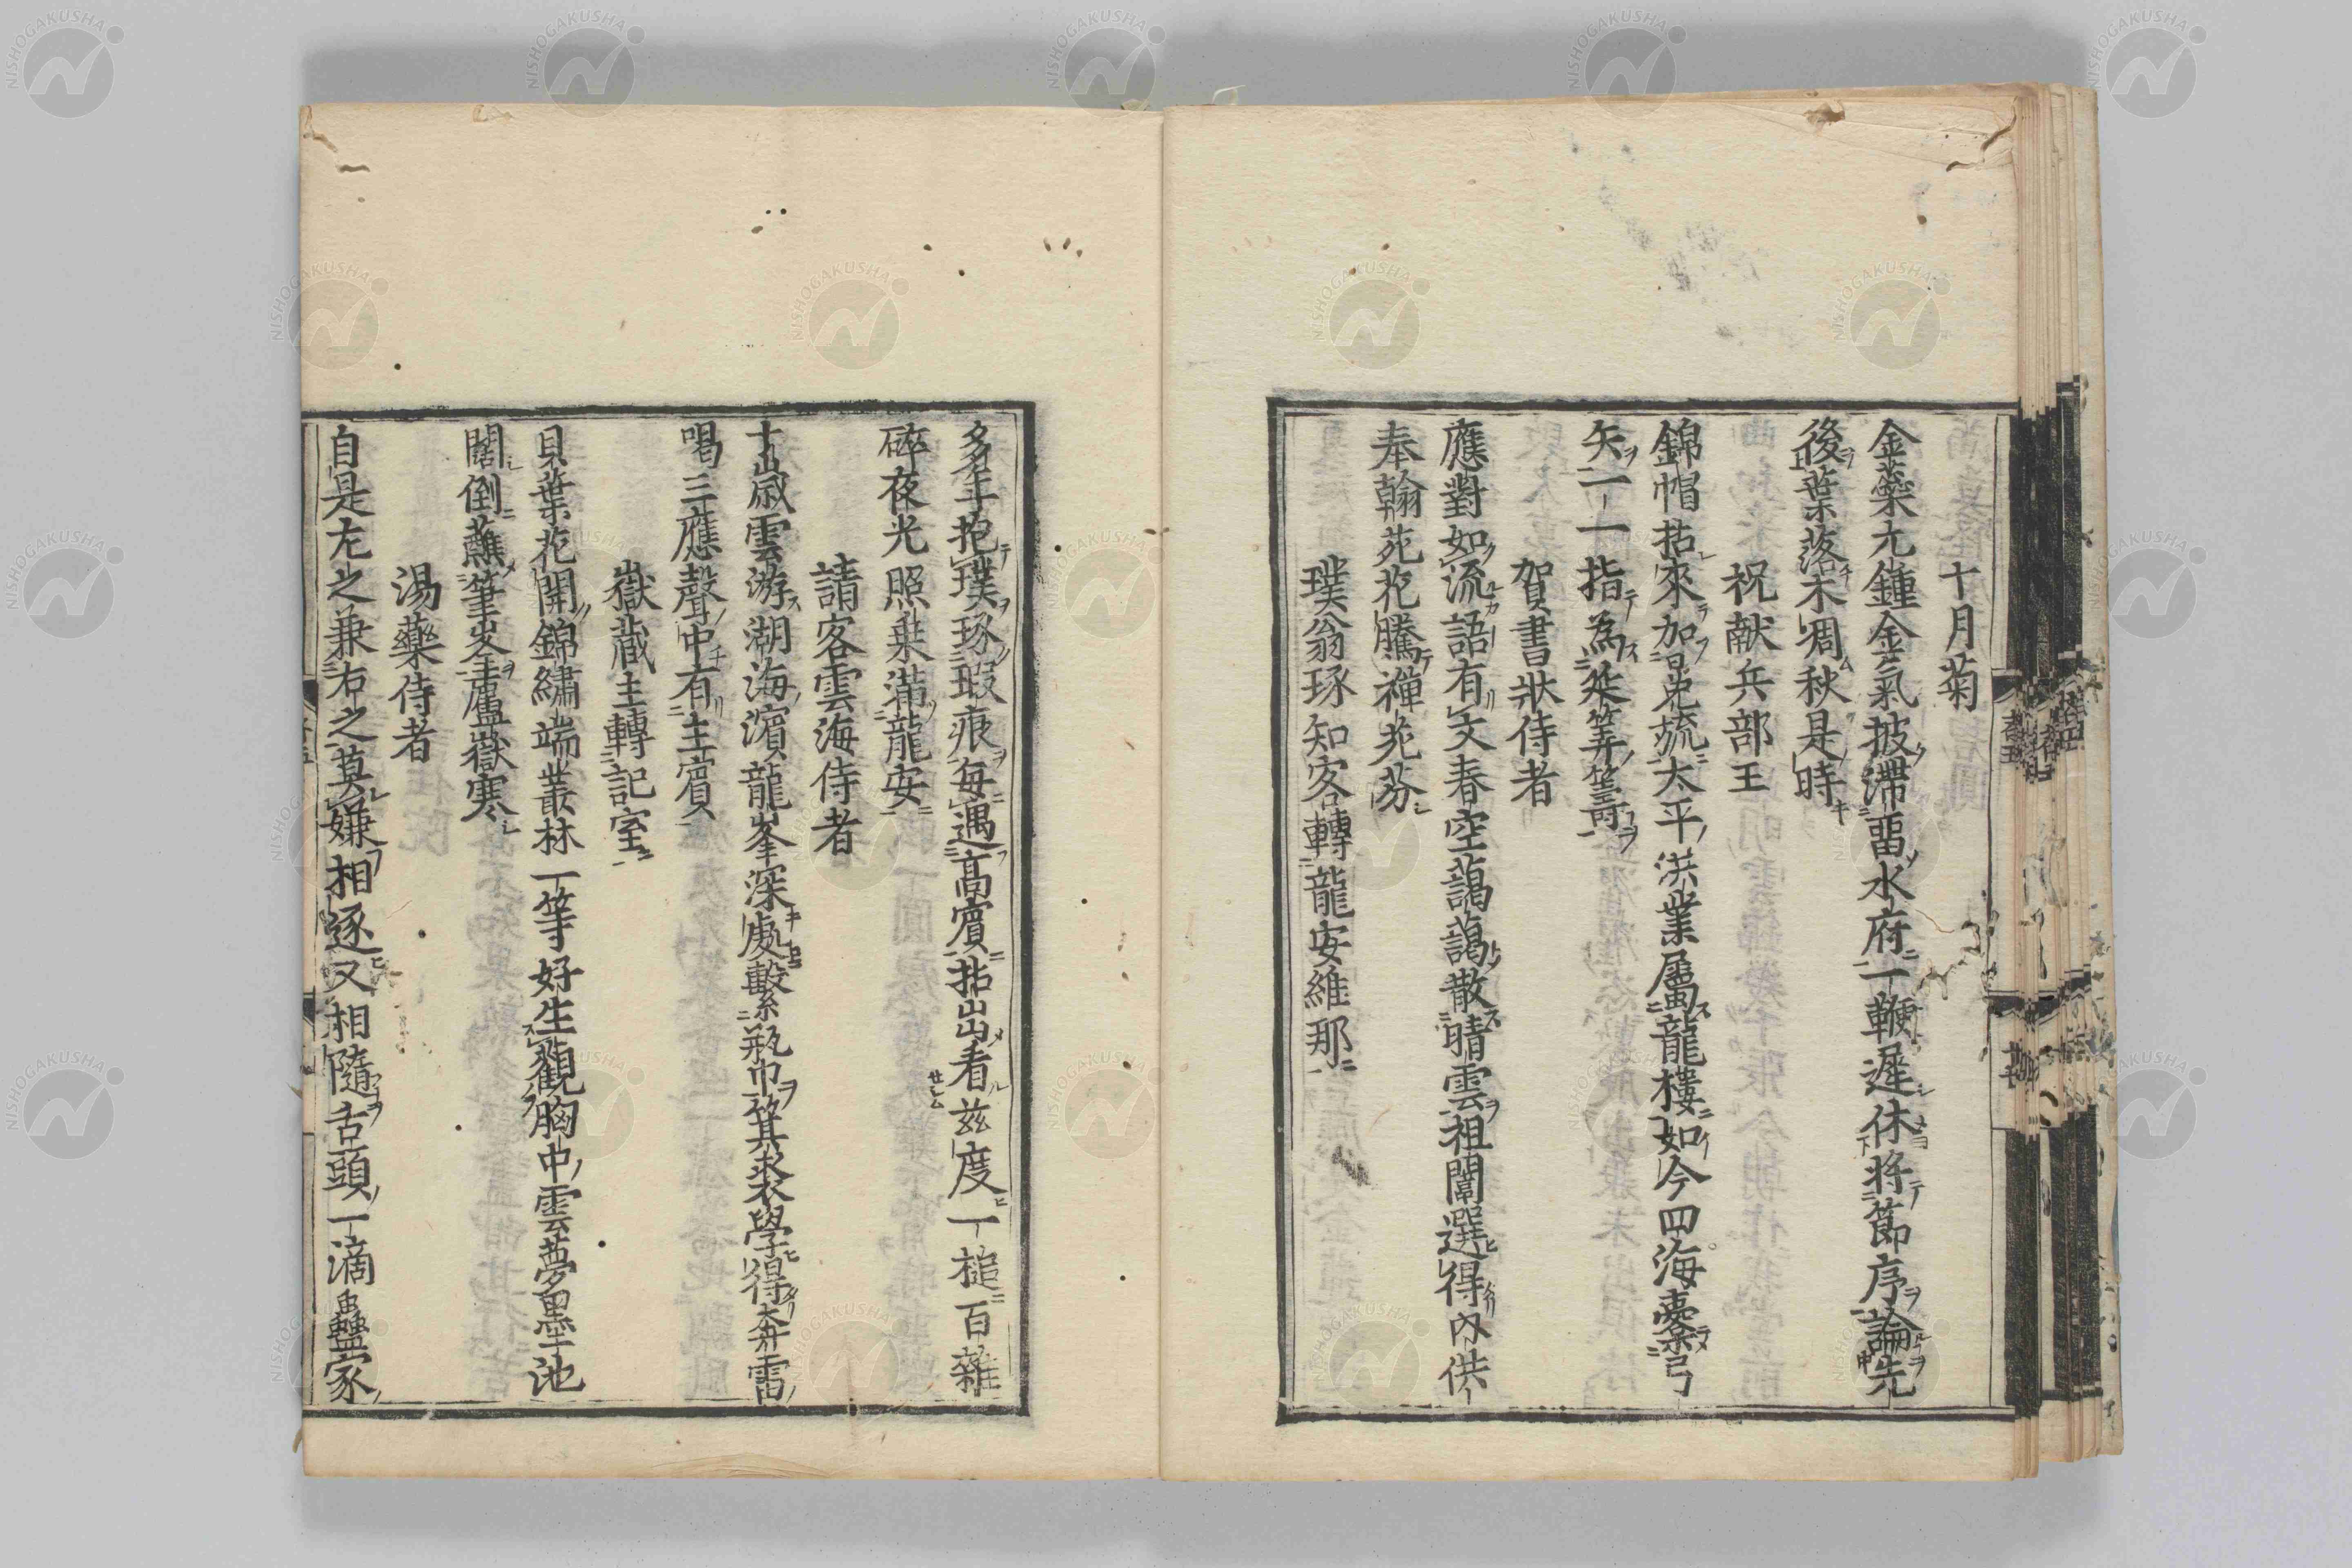 十月菊
金蘂尤鍾金氣披滯畱水府一鞭遲休將節序論先
後葉落木凋秋是時
祝献兵部王
錦帽拈來加冕旒太平洪業屬龍樓如今四海櫜弓
矢二一指為筭籌
賀書狀侍者
應對如流語有文春空藹藹散晴雲祖闈選得内供
奉翰苑花騰禪苑芬
璞翁琢知客轉龍安維那
多年抱璞琢瑕痕每遇高賓拈出看茲度一槌百雜
碎夜光照乗滿龍安
請客雲海侍者
十歳雲游湖海濱龍峯深處繫瓶巾箕裘學得奔雷
喝三應聲中有主賓
嶽藏主轉記室
貝葉花開錦繡端叢林一等好生觀胸中雲夢墨池
闊倒蘸筆峯廬嶽寒
湯藥侍者
自是左之兼右之莫嫌相逐又相隨舌頭一滴蠱家